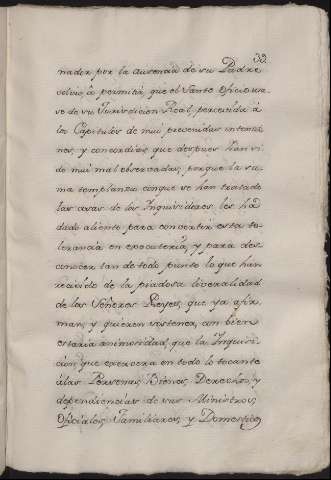 32
nador por la ausencia de su Padre
volvió à permitir, que el Santo Oficio usa-
se de su Jurisdicion Real, precedida á
los Capitulos de mui prevenidas instruccio
nes, y concordias, que despues han si
do mui mal observadas, porque la su
ma templanza con que se han tratado
las cosas de los Inquisidores, les ha
dado aliento, para convertir esta to-
lerancia en executoria, y para des
conocer tan de todo punto lo que han
recivido de la piadosa liveralidad
de los Señores Reyes, que ya afir
man, y quieren sostener, con bien
estraña animosidad, que la Jurisdi
cion que exercen en todo lo tocante
á las Personas, Bienes, Derechos, y
dependiencias de sus Ministros
Oficiales, Familiares, y Domesticos